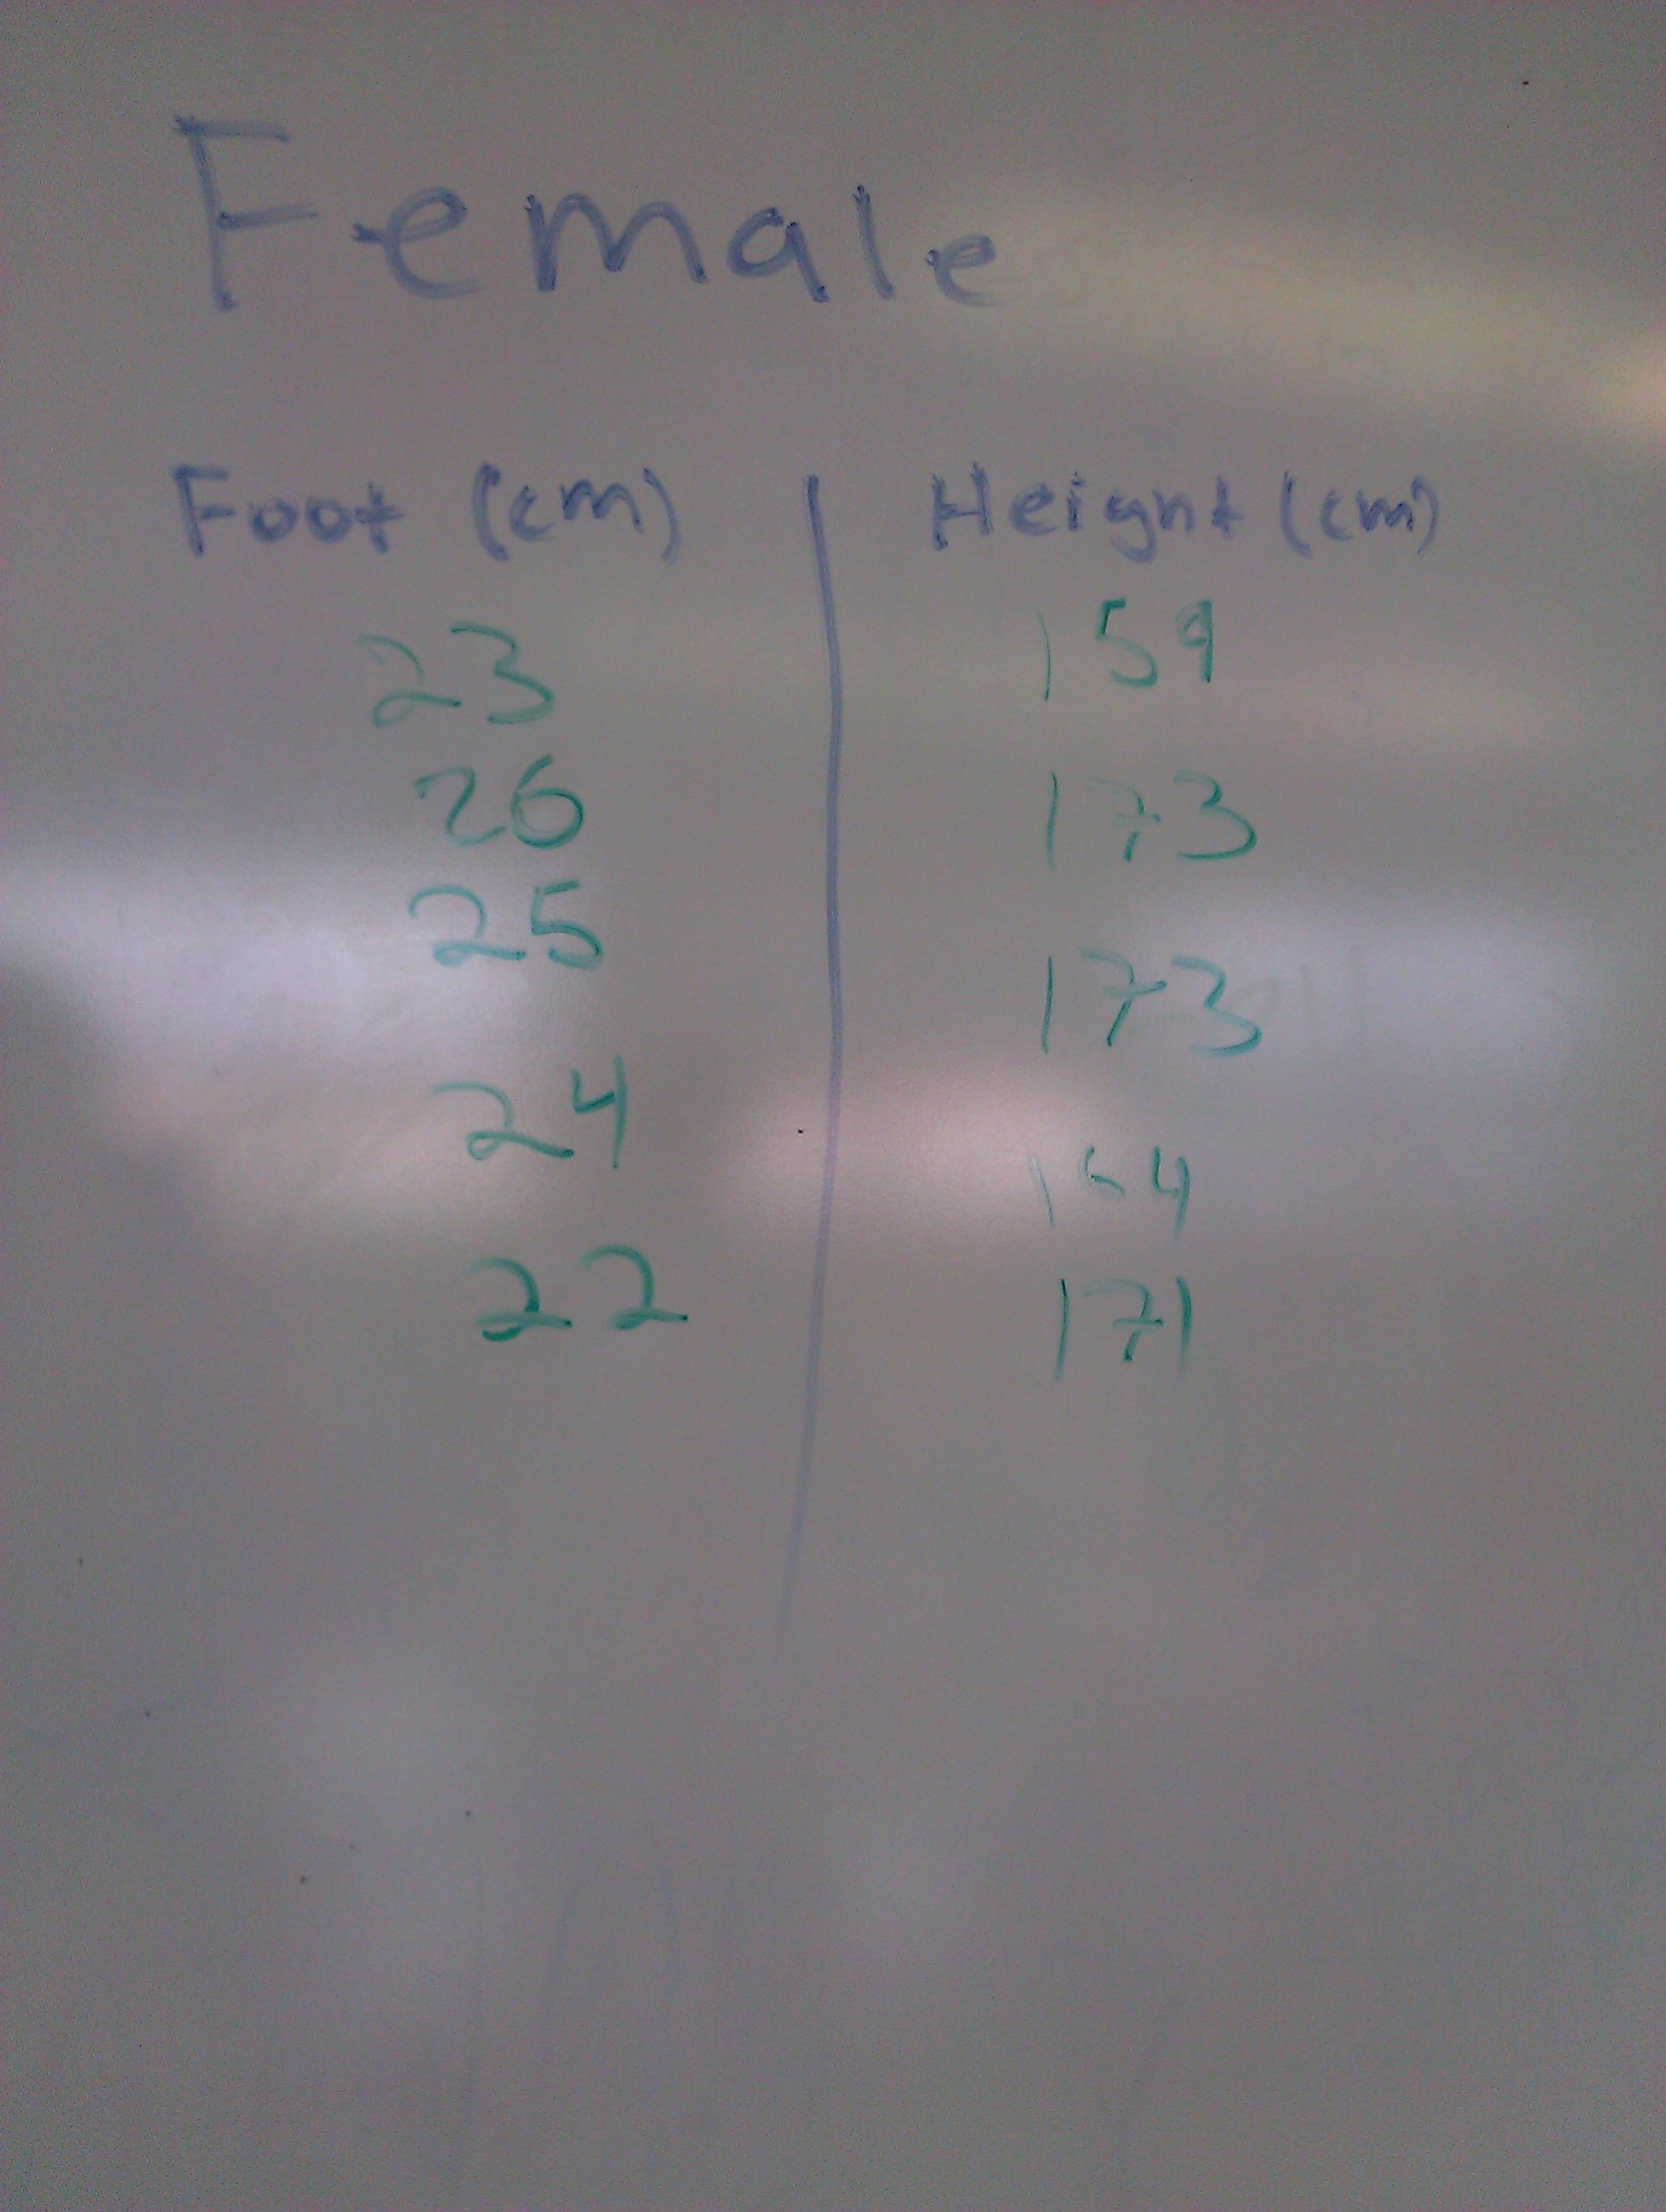 Female
Foot (cm) Height (cm)
23 159
26 173
25 173
24
22 171